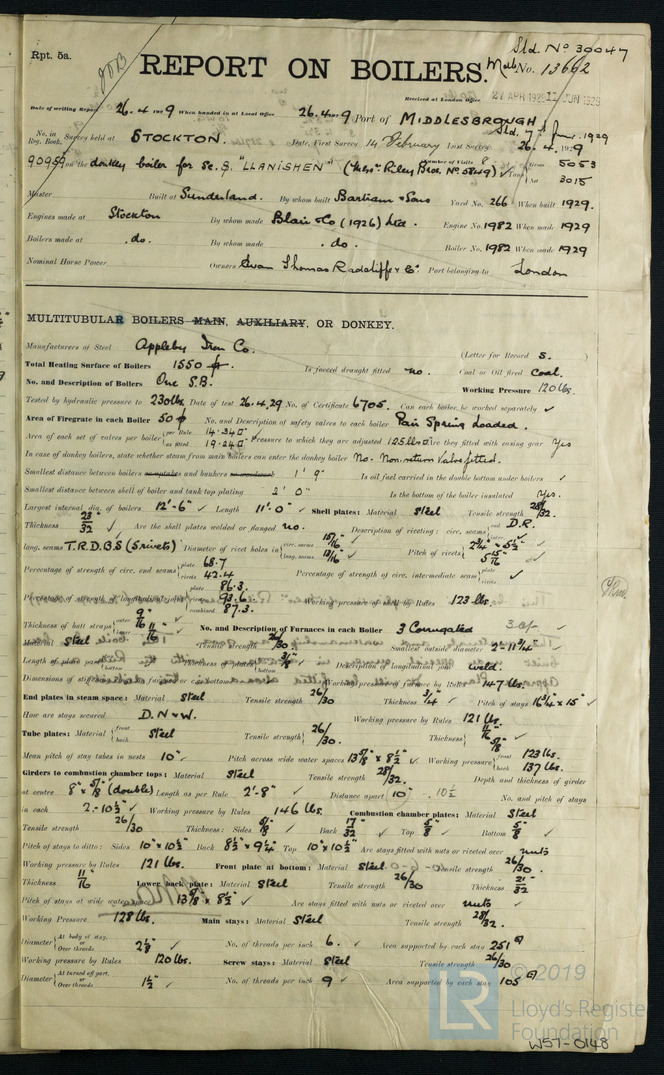 Rpt. 5a.
JOB
Sld. No 30047
REPORT ON BOILERS.
Mdb No. 13662
Received at London Office
27 APR 1929 12 JUN 1929
Date of writing Report 26.4.1929 When handed in at Local Office 26.4.1929 Port of MIDDLESBROUGH
No. in Reg. Book. Survey held at STOCKTON. Date, First Survey 14 February Last Survey 26.4.1929
90959 on the donkey boiler for Sc. S. "LLANISHEN" (Messrs Riley Bros. No. 5849) Number of Visits 8 Gross 5053
Tons Net 3015
Master Built at Sunderland. By whom built Bartram & Sons Yard No. 266 When built 1929.
Engines made at Stockton By whom made Blair & Co (1926) Ltd. Engine No. 1982 When made 1929
Boilers made at do. By whom made do. Boiler No. 1982 When made 1929
Nominal Horse Power Owners Evan Thomas Radcliffe & Co. Port belonging to London
MULTITUBULAR BOILERS MAIN, AUXILIARY, OR DONKEY.
Manufacturers of Steel Appleby Iron Co. (Letter for Record S. )
Total Heating Surface of Boilers 1550 Is forced draught fitted no. Coal or Oil fired Coal.
No. and Description of Boilers One S.B. Working Pressure 120 lbs.
Tested by hydraulic pressure to 230 lbs. Date of test 26.4.29 No. of Certificate 6705. Can each boiler be worked separately ✓
Area of Firegrate in each Boiler 50 No. and Description of safety valves to each boiler Pair Spring Loaded.
Area of each set of valves per boiler per Rule 14.34 □" as fitted 19.24 □" Pressure to which they are adjusted 125 lbs Are they fitted with easing gear Yes
In case of donkey boilers, state whether steam from main boilers can enter the donkey boiler No. Non return Valve fitted.
Smallest distance between boilers or uptakes and bunkers or woodwork 1' 9" Is oil fuel carried in the double bottom under boilers ✓
Smallest distance between shell of boiler and tank top plating 2' 0" Is the bottom of the boiler insulated Yes.
Largest internal dia. of boilers 12'-6" ✓ Length 11'.0" ✓ Shell plates: Material Steel Tensile strength 28/32.
Thickness 23/32 ✓ Are the shell plates welded or flanged no. Description of riveting: circ. seams end D.R. inter. ✓
long. seams T.R.D.B.S (5 rivets) Diameter of rivet holes in circ. seams 15/16" long. seams 13/16" ✓ Pitch of rivets
Percentage of strength of circ. end seams plate 68.7 rivets 42.4 Percentage of strength of circ. intermediate seam plate rivets ✓
Percentage of strength of longitudinal joint plate 86.3 rivets 93.6 combined 87.3. Working pressure of shell by Rules 123 lbs.
Thickness of butt straps outer 9/16" inner 11/16" No. and Description of Furnaces in each Boiler 3 Corrugated
Material Steel Tensile strength 26/30 Smallest outside diameter 2'-11 3/4"
Description of longitudinal joint weld.
Working pressure of furnace by Rules 147 lbs.
End plates in steam space: Material Steel Tensile strength 26/30 Thickness 3/4" ✓ Pitch of stays 16 3/4" x 15" ✓
How are stays secured D.N & W. Working pressure by Rules 121 lbs.
Tube plates: Material front back Steel Tensile strength 26/30. Thickness 11/16" 5/8"
Mean pitch of stay tubes in nests 10" ✓ Pitch across wide water spaces 13 5/8" x 8 1/2" ✓ Working pressure front 123 lbs. back 137 lbs.
Girders to combustion chamber tops: Material Steel Tensile strength 28/32. Depth and thickness of girder
at centre 8" x 5/8" (double) Length as per Rule 2'-8" Distance apart 10" 10 1/2 No. and pitch of stays
in each 2 - 10 1/2" ✓ Working pressure by Rules 146 lbs. Combustion chamber plates: Material Steel
Tensile strength 26/30 Thickness: Sides 5/8" ✓ Back 17/32 ✓ Top 5/8" ✓ Bottom 5/8" ✓
Pitch of stays to ditto: Sides 10" x 10 1/2" Back 8 1/2" x 9 1/4" Top 10" x 10 1/2" Are stays fitted with nuts or riveted over nuts
Working pressure by Rules 121 lbs. Front plate at bottom: Material Steel Tensile strength 26/30.
Thickness 11/16" Lower back plate: Material Steel Tensile strength 26/30 Thickness 21/32"
Pitch of stays at wide water space 13 5/8" x 8 1/2" ✓ Are stays fitted with nuts or riveted over nuts ✓
Working Pressure 128 lbs. Main stays: Material Steel Tensile strength 28/32.
Diameter At body of stay, or Over threads 2 1/8" ✓ No. of threads per inch 6. ✓ Area supported by each stay 251 □"
Working pressure by Rules 120 lbs. Screw stays: Material Steel Tensile strength 26/30
Diameter At turned off part, or Over threads 1 1/2" ✓ No. of threads per inch 9 ✓ Area supported by each stay 105 □"
© 2019
LR Lloyd's Register
Foundation
W57-0148